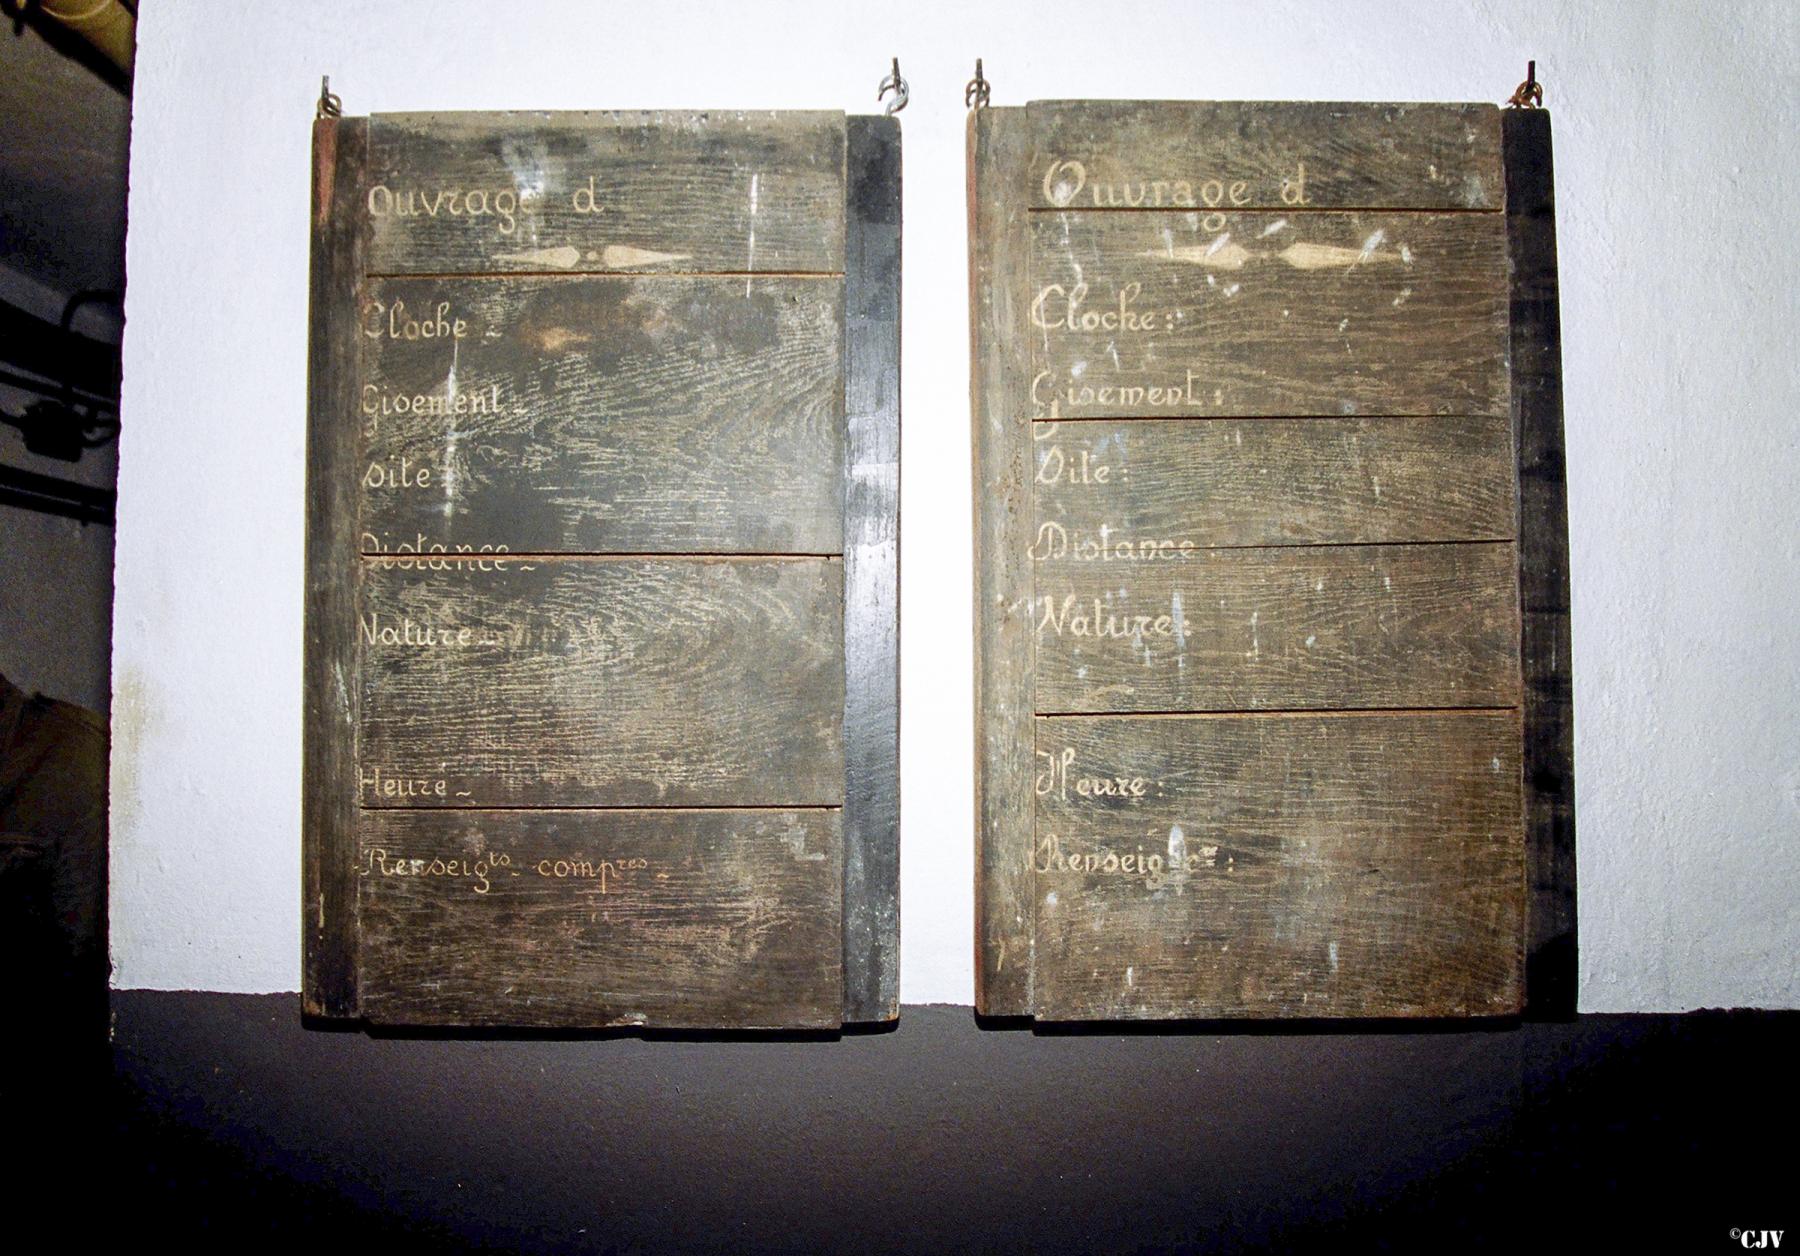 Ouvrage d
Cloche -
Gisement -
Site
Distance -
Nature -
Heure -
Renseigts - compres -
Ouvrage d
Cloche :
Gisement :
Site :
Distance :
Nature :
Heure :
©CJV